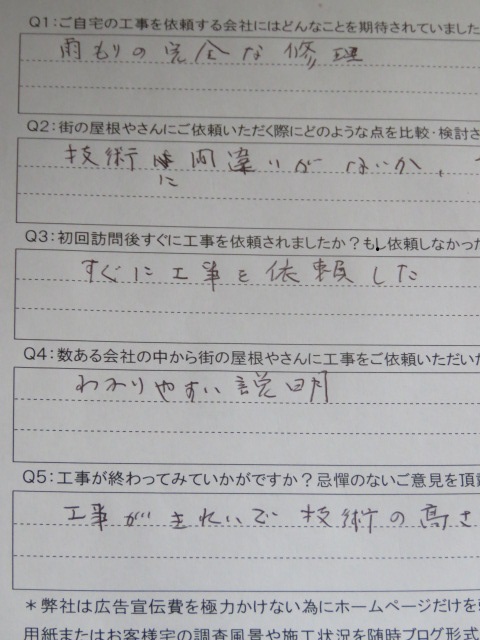 Q1：ご自宅の工事を依頼する会社にはどんなことを期待されていました
雨もりの完全な修理
Q2：街の屋根やさんにご依頼いただく際にどのような点を比較・検討さ
技術に間違いがないか、
Q3：初回訪問後すぐに工事を依頼されましたか？もし依頼しなかった
すぐに工事を依頼した
Q4：数ある会社の中から街の屋根やさんに工事をご依頼いただいた
わかりやすい説明
Q5：工事が終わってみていかがですか？忌憚のないご意見を頂
工事がきれいで技術の高さ
＊弊社は広告宣伝費を極力かけない為にホームページだけを
用紙またはお客様宅の調査風景や施工状況を随時ブログ形式